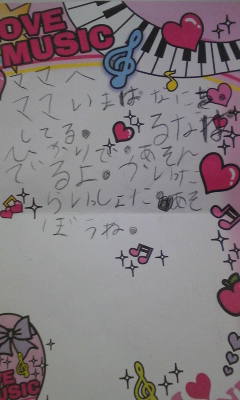 OVE
MUSIC
ママへ
ママ いまは なにを
してる。 るなは
ひかりで。あそん
でるよ。
らいっしょに あそ
ぼうね。
VE
MUSIC